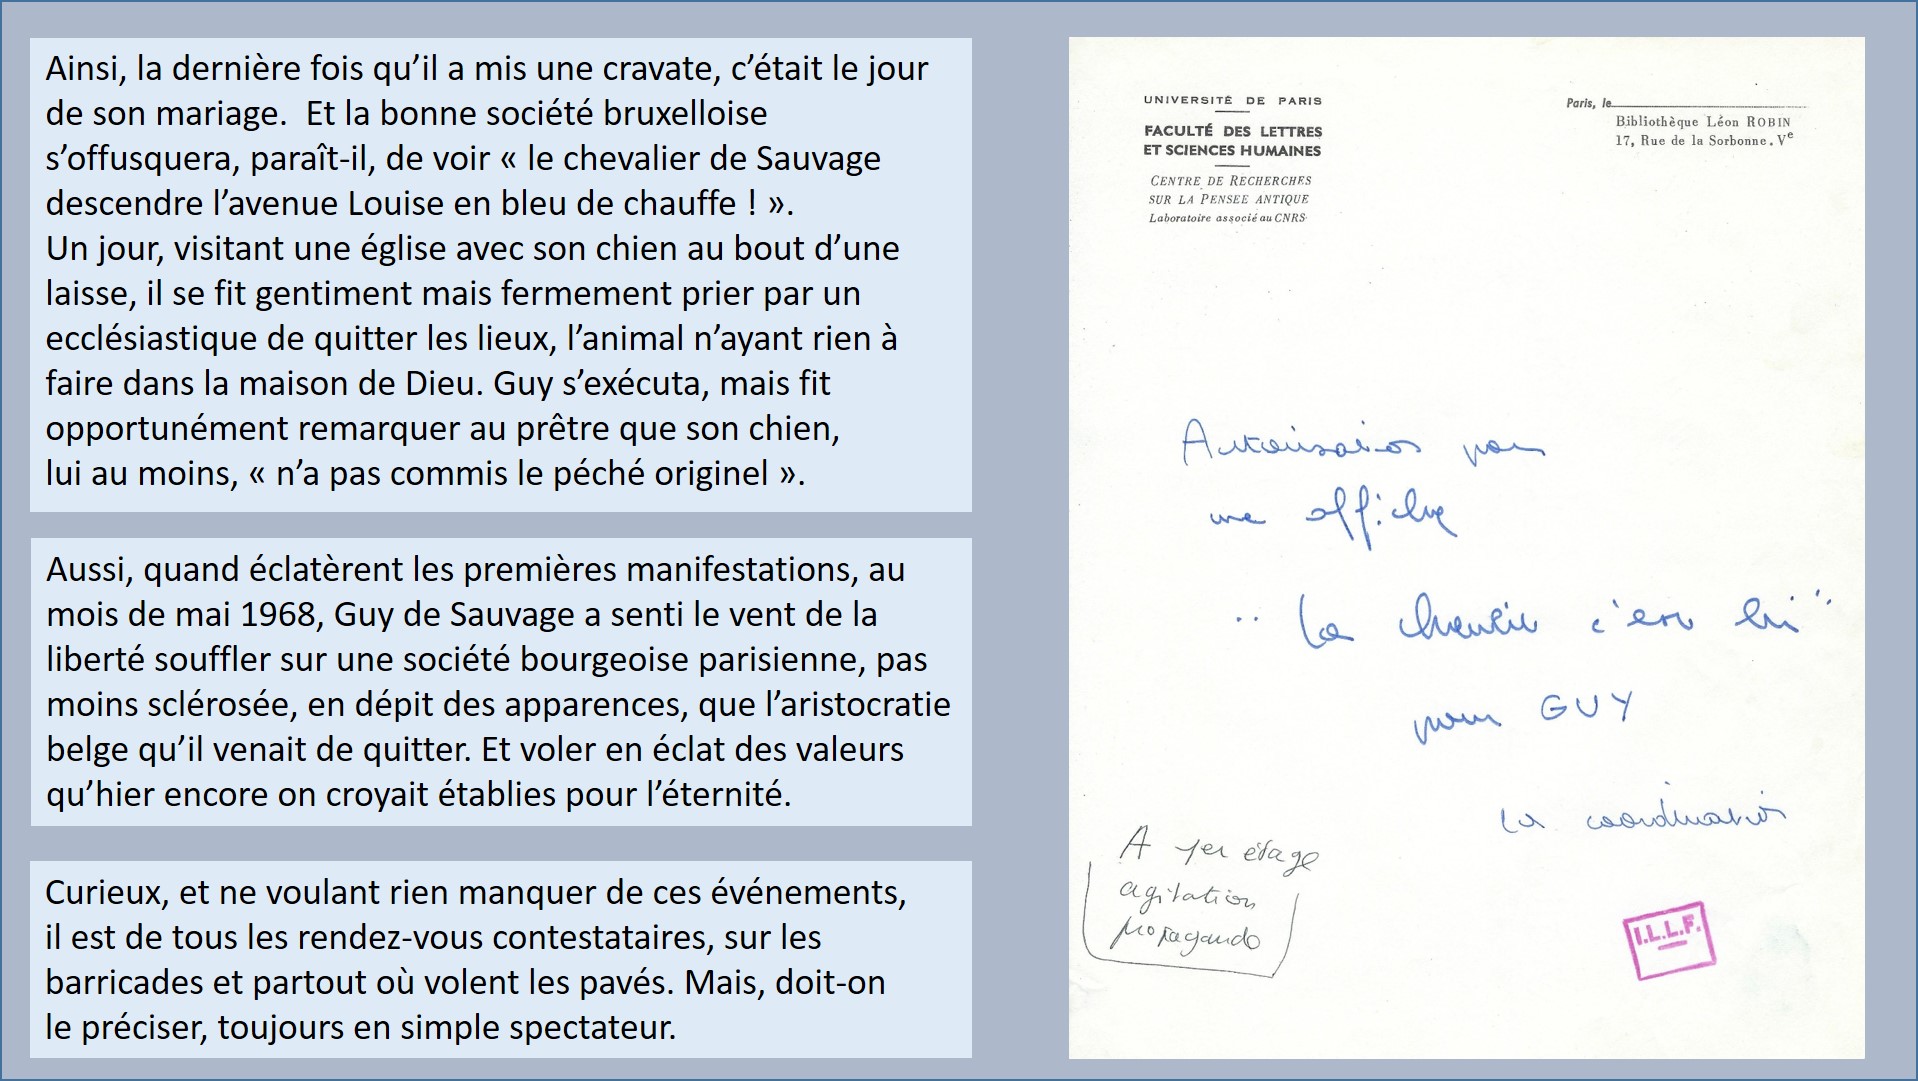 Ainsi, la dernière fois qu’il a mis une cravate, c’était le jour
de son mariage.  Et la bonne société bruxelloise
s’offusquera, paraît-il, de voir « le chevalier de Sauvage
descendre l’avenue Louise en bleu de chauffe ! ».
Un jour, visitant une église avec son chien au bout d’une
laisse, il se fit gentiment mais fermement prier par un
ecclésiastique de quitter les lieux, l’animal n’ayant rien à
faire dans la maison de Dieu. Guy s’exécuta, mais fit
opportunément remarquer au prêtre que son chien,
lui au moins, « n’a pas commis le péché originel ».
Aussi, quand éclatèrent les premières manifestations, au
mois de mai 1968, Guy de Sauvage a senti le vent de la
liberté souffler sur une société bourgeoise parisienne, pas
moins sclérosée, en dépit des apparences, que l’aristocratie
belge qu’il venait de quitter. Et voler en éclat des valeurs
qu’hier encore on croyait établies pour l’éternité.
Curieux, et ne voulant rien manquer de ces événements,
il est de tous les rendez-vous contestataires, sur les
barricades et partout où volent les pavés. Mais, doit-on
le préciser, toujours en simple spectateur.
UNIVERSITÉ DE PARIS
FACULTÉ DES LETTRES
ET SCIENCES HUMAINES
CENTRE DE RECHERCHES
SUR LA PENSEE ANTIQUE
Laboratoire associé au CNRS
Paris, le
Bibliothèque Léon ROBIN
17, Rue de la Sorbonne. Ve
Autorisation pour
une affiche
"La chienlit c'est lui"
pour GUY
La coordination
A 1er étage
agitation
propagande
I.L.L.F.